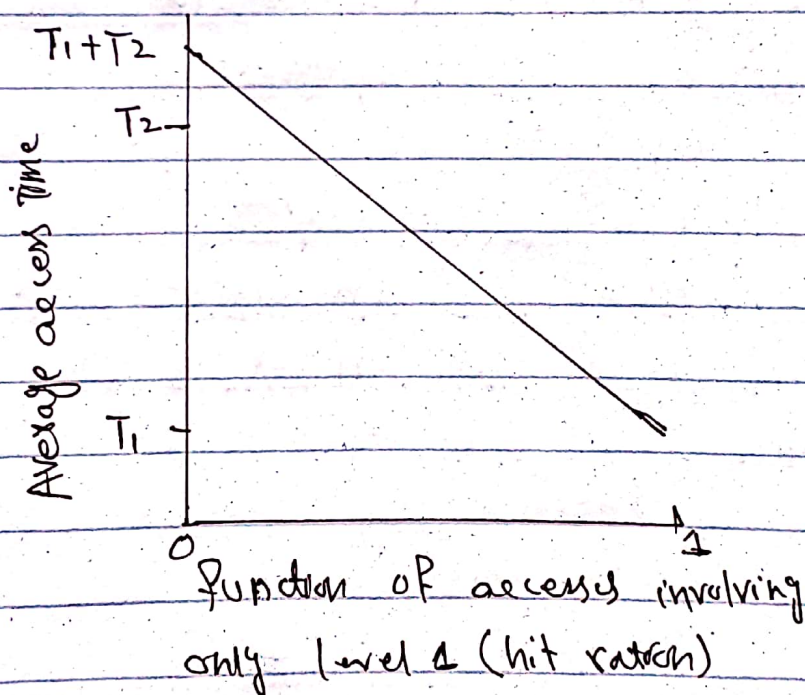 T1+T2
T2
Average access time
T1
0
1
function of accesses involving
only level 1 (hit ration)